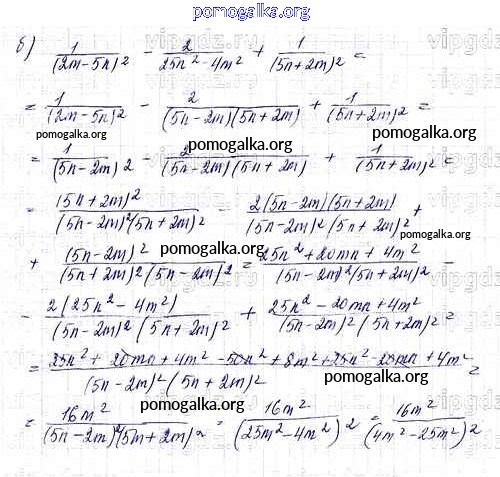 pomogalka.org
б) 1/(2m-5n)² - 2/(25n²-4m²) + 1/(5n+2m)² =
= 1/(2m-5n)² - 2/((5n-2m)(5n+2m)) + 1/(5n+2m)² =
pomogalka.org pomogalka.org
= 1/(5n-2m)² - 2/((5n-2m)(5n+2m)) + 1/(5n+2m)² =
pomogalka.org
= (5n+2m)²/((5n-2m)²(5n+2m)²) - 2(5n-2m)(5n+2m)/((5n-2m)²(5n+2m)²) +
+ (5n-2m)²/((5n+2m)²(5n-2m)²) = (25n²+20mn+4m²)/((5n-2m)²(5n+2m)²) -
pomogalka.org
- 2(25n²-4m²)/((5n-2m)²(5n+2m)²) + (25n²-20mn+4m²)/((5n-2m)²(5n+2m)²) =
pomogalka.org
= (25n²+20mn+4m²-50n²+8m²+25n²-20mn+4m²)/((5n-2m)²(5n+2m)²) =
pomogalka.org pomogalka.org
= 16m²/((5n-2m)²(5m+2m)²) = 16m²/(25m²-4m²)² = 16m²/(4m²-25m²)²
pomogalka.org